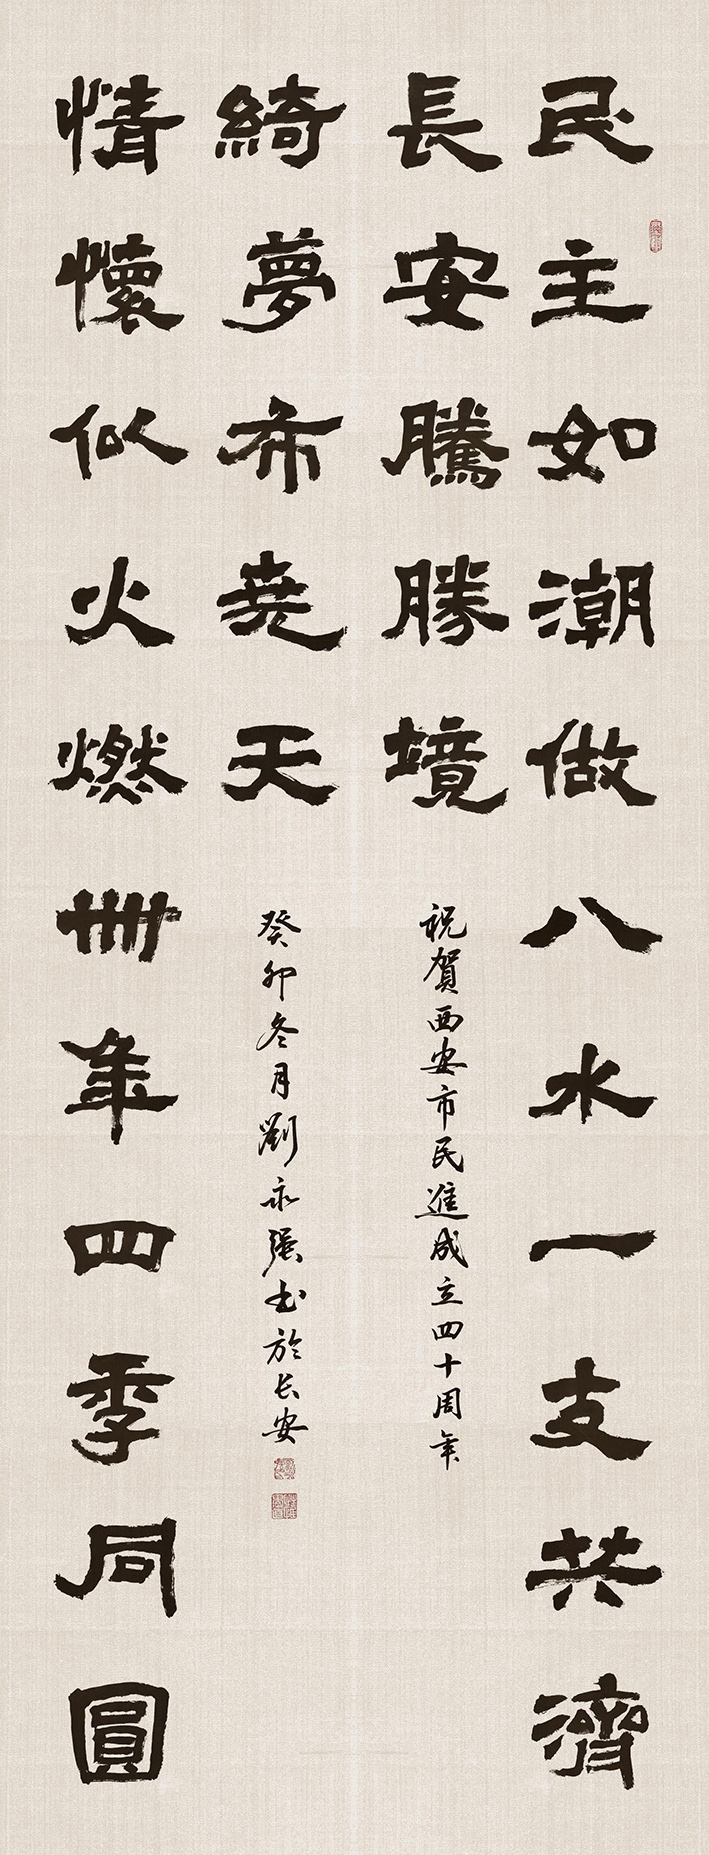 民主如潮做八水一支共濟
長安騰勝境
祝賀西安市民進成立四十周年
情懷似火燃卌年四季同圓
綺夢布堯天
癸卯冬月劉永强书於长安